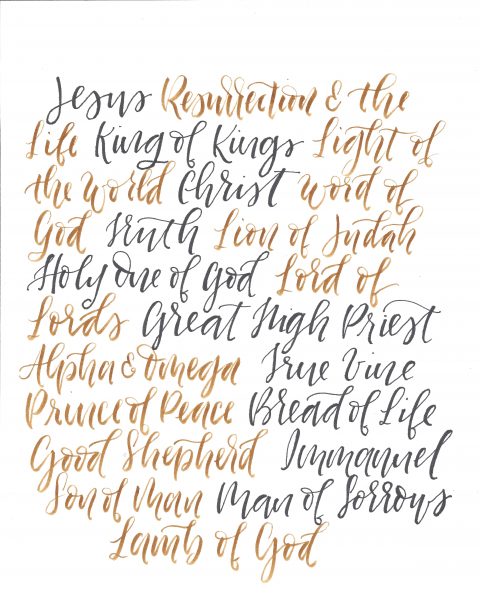 Jesus Resurrection & the
Life King of Kings Light of
the World Christ Word of
God Truth Lion of Judah
Holy One of God Lord of
Lords Great High Priest
Alpha & Omega True Vine
Prince of Peace Bread of Life
Good Shepherd Immanuel
Son of Man Man of Sorrows
Lamb of God